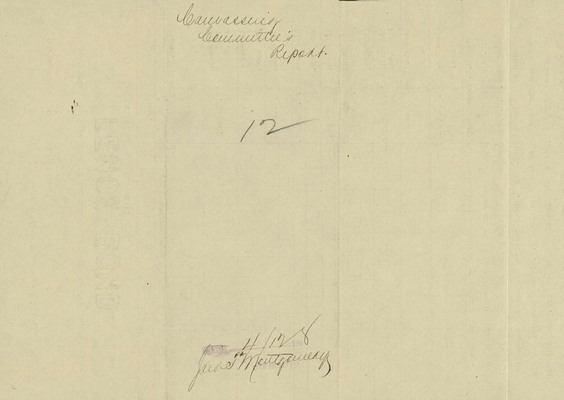 Canvassing
Committee's
Report.
12
4/12 8
Montgomery